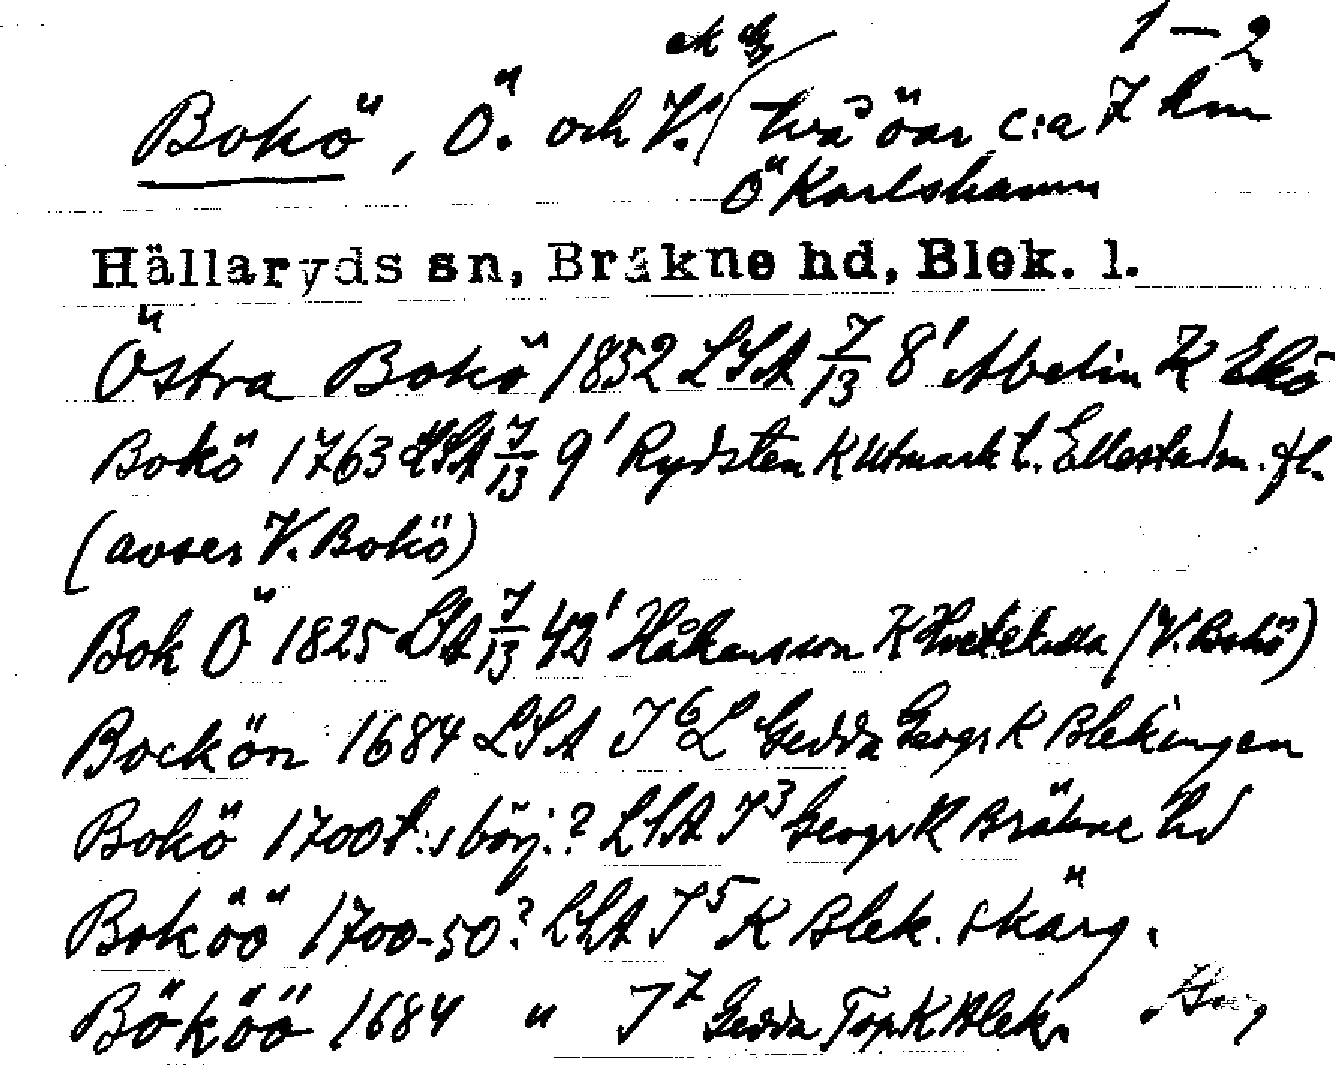 ek 1–2
Bokö, Ö. och V. två öar c:a 7 km
Ö Karlshamn
Hällaryds sn, Bräkne hd, Blek. l.
Östra Bokö 1852 LSA 7/13 8' Abelin K Ekö
Bokö 1763 LSA 7/13 9' Rydsten K Utmark t.
(avser V. Bokö)
Bok Ö 1825 LSA 7/13 42' Håkansson K (V. Bokö)
Bockön 1684 LSA I 6 L Gedda Geogr K Blekingen
Bokö 1700t:s börj.? LSA I 3 Geogr K Bräkne hd
Boköö 1700-50? LSA I 5 K Blek. skärg.
Bököö 1684 " I 7 Gedda Top K Blek.